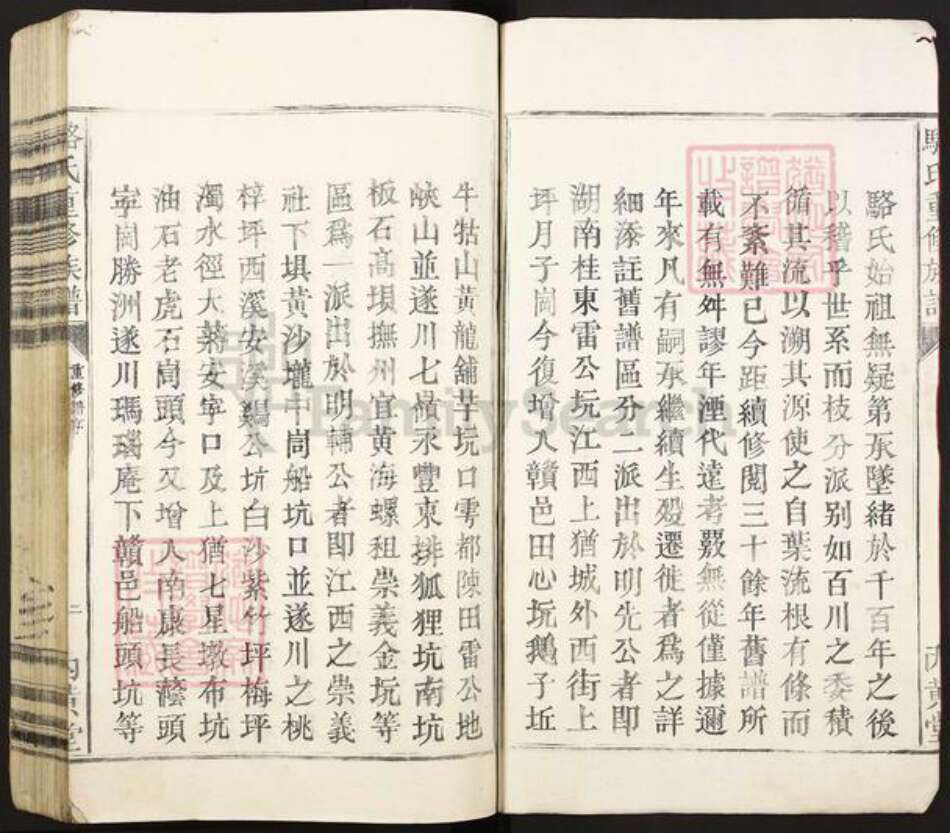 駱氏始祖無疑第承墜緒於千百年之後
以稽乎世系而枝分派别如百川之委積
循其流以溯其源使之自葉流根有條而
不紊難已今距續修閱三十餘年舊譜所
載有無舛謬年湮代遠考覈無從僅據邇
年來凡有嗣承繼續生殁遷徙者爲之詳
細添註舊譜區分二派出於明先公者即
湖南桂東雷公坑江西上猶城外西街上
坪月子崗今復增入贛邑田心坑鵝子坵
牛牯山黃龍舖芋坑口雩都陳田雷公地
峽山並遂川七嶺永豐東排狐狸坑南坑
板石高塤撫州宜黃海螺租崇義金坑等
區爲一派出於明輔公者即江西之崇義
社下塤黃沙壠中崗船坑口並遂川之桃
梓坪西溪安溪鷄公坑白沙紫竹坪梅坪
濁水徑大業安寜口及上猶七星墩布坑
油石老虎石崗頭今又增入南康長蔭頭
寜崗勝洲遂川瑪瑙庵下贛邑船頭坑等
駱氏重修族譜
重修譜序
二
內黃堂
FamilySearch